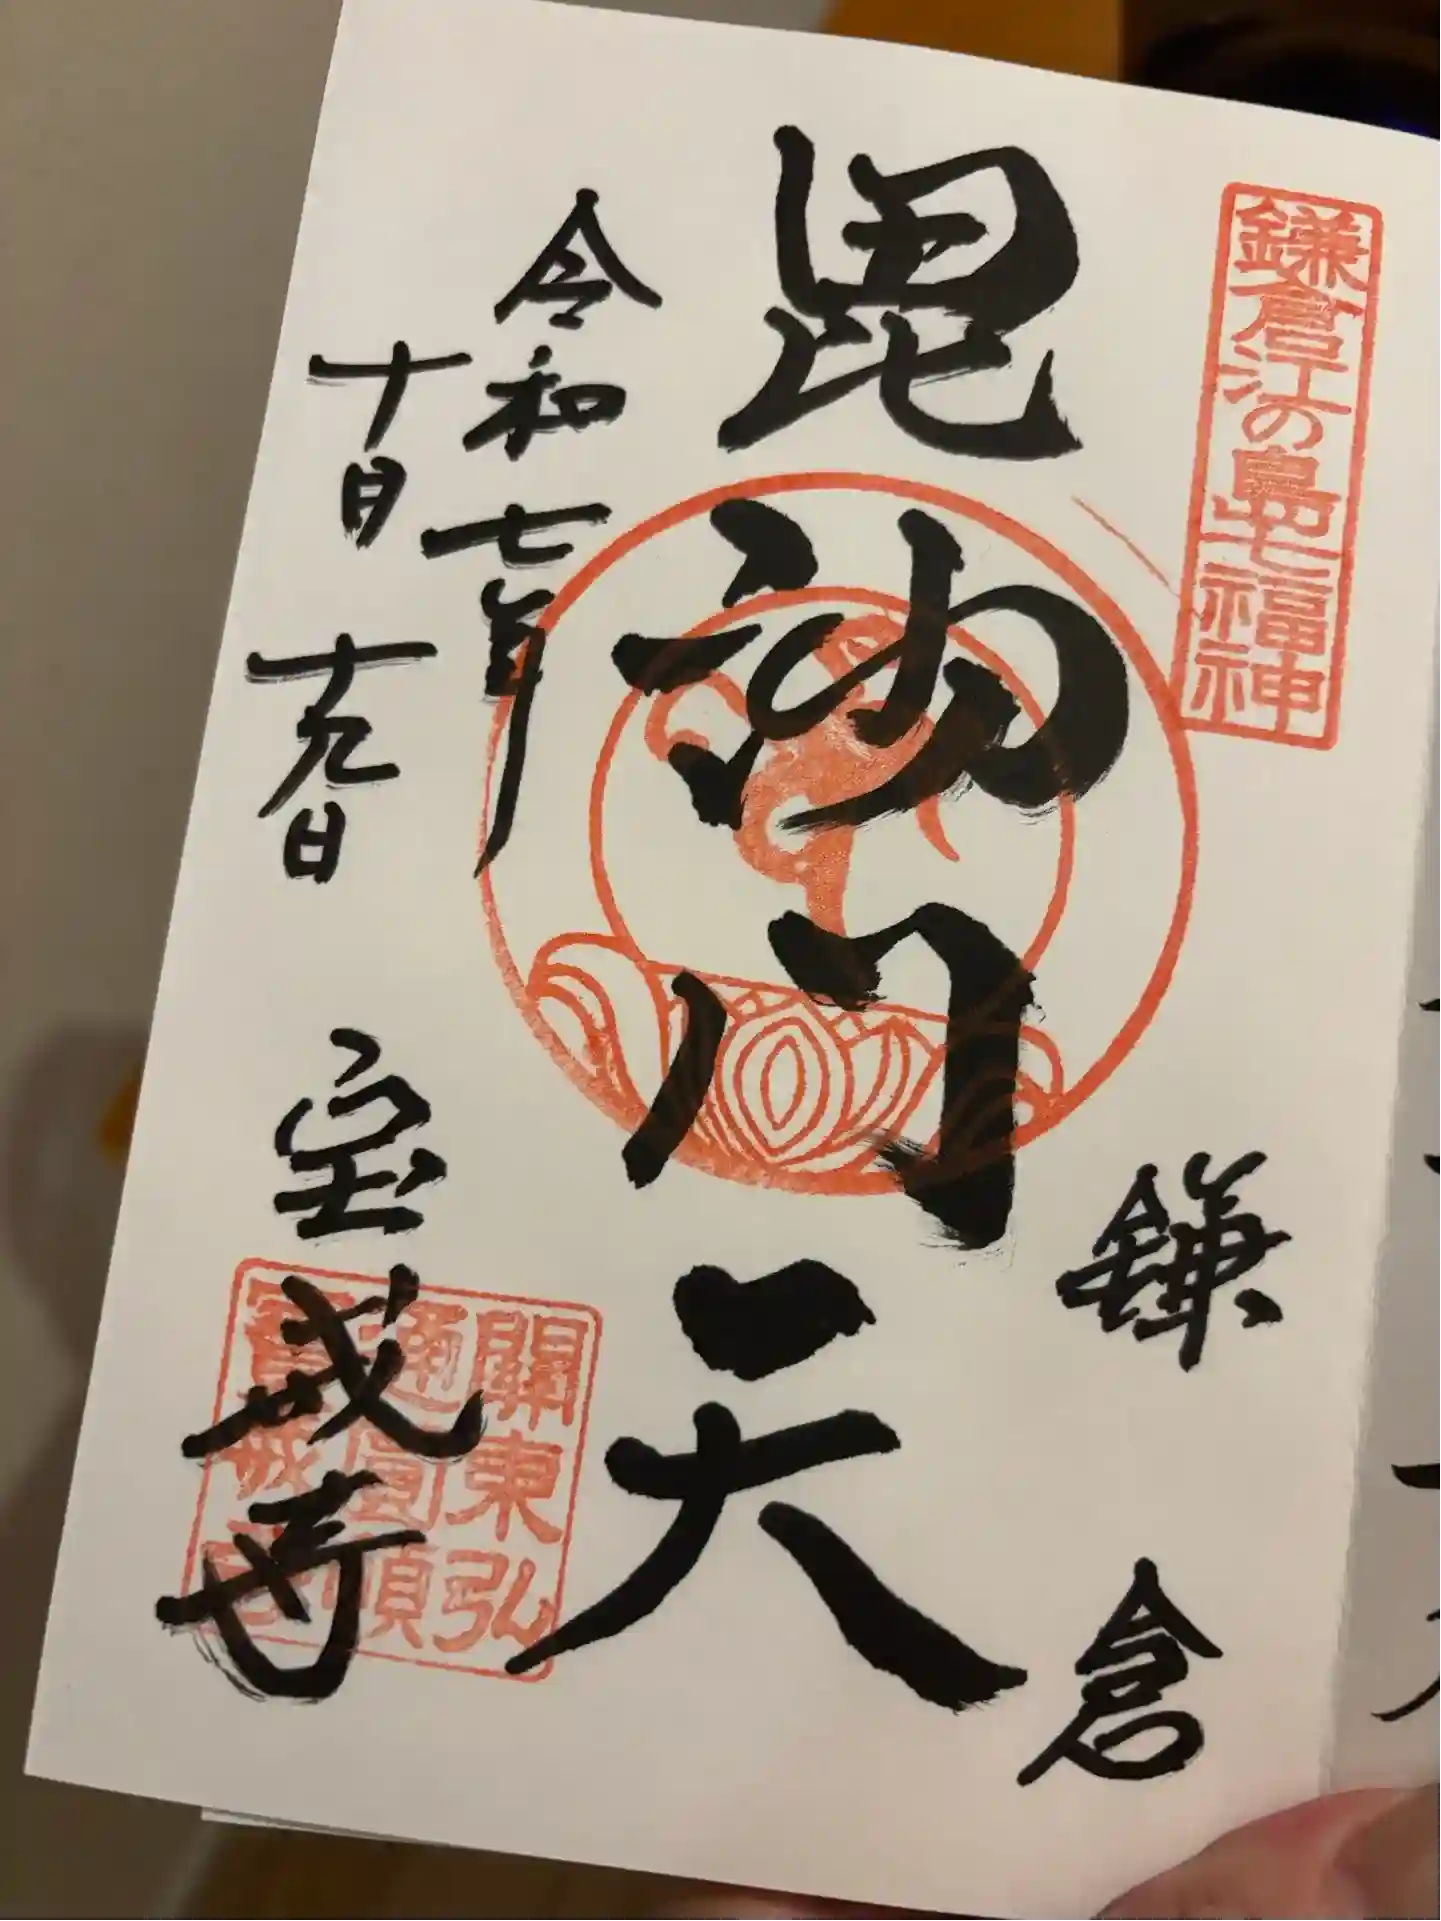 鎌倉江の島七福神
鎌倉
毘沙門天
令和七年
十月
十九日
宝戒寺
關東弘
通圓頓
寳戒寺